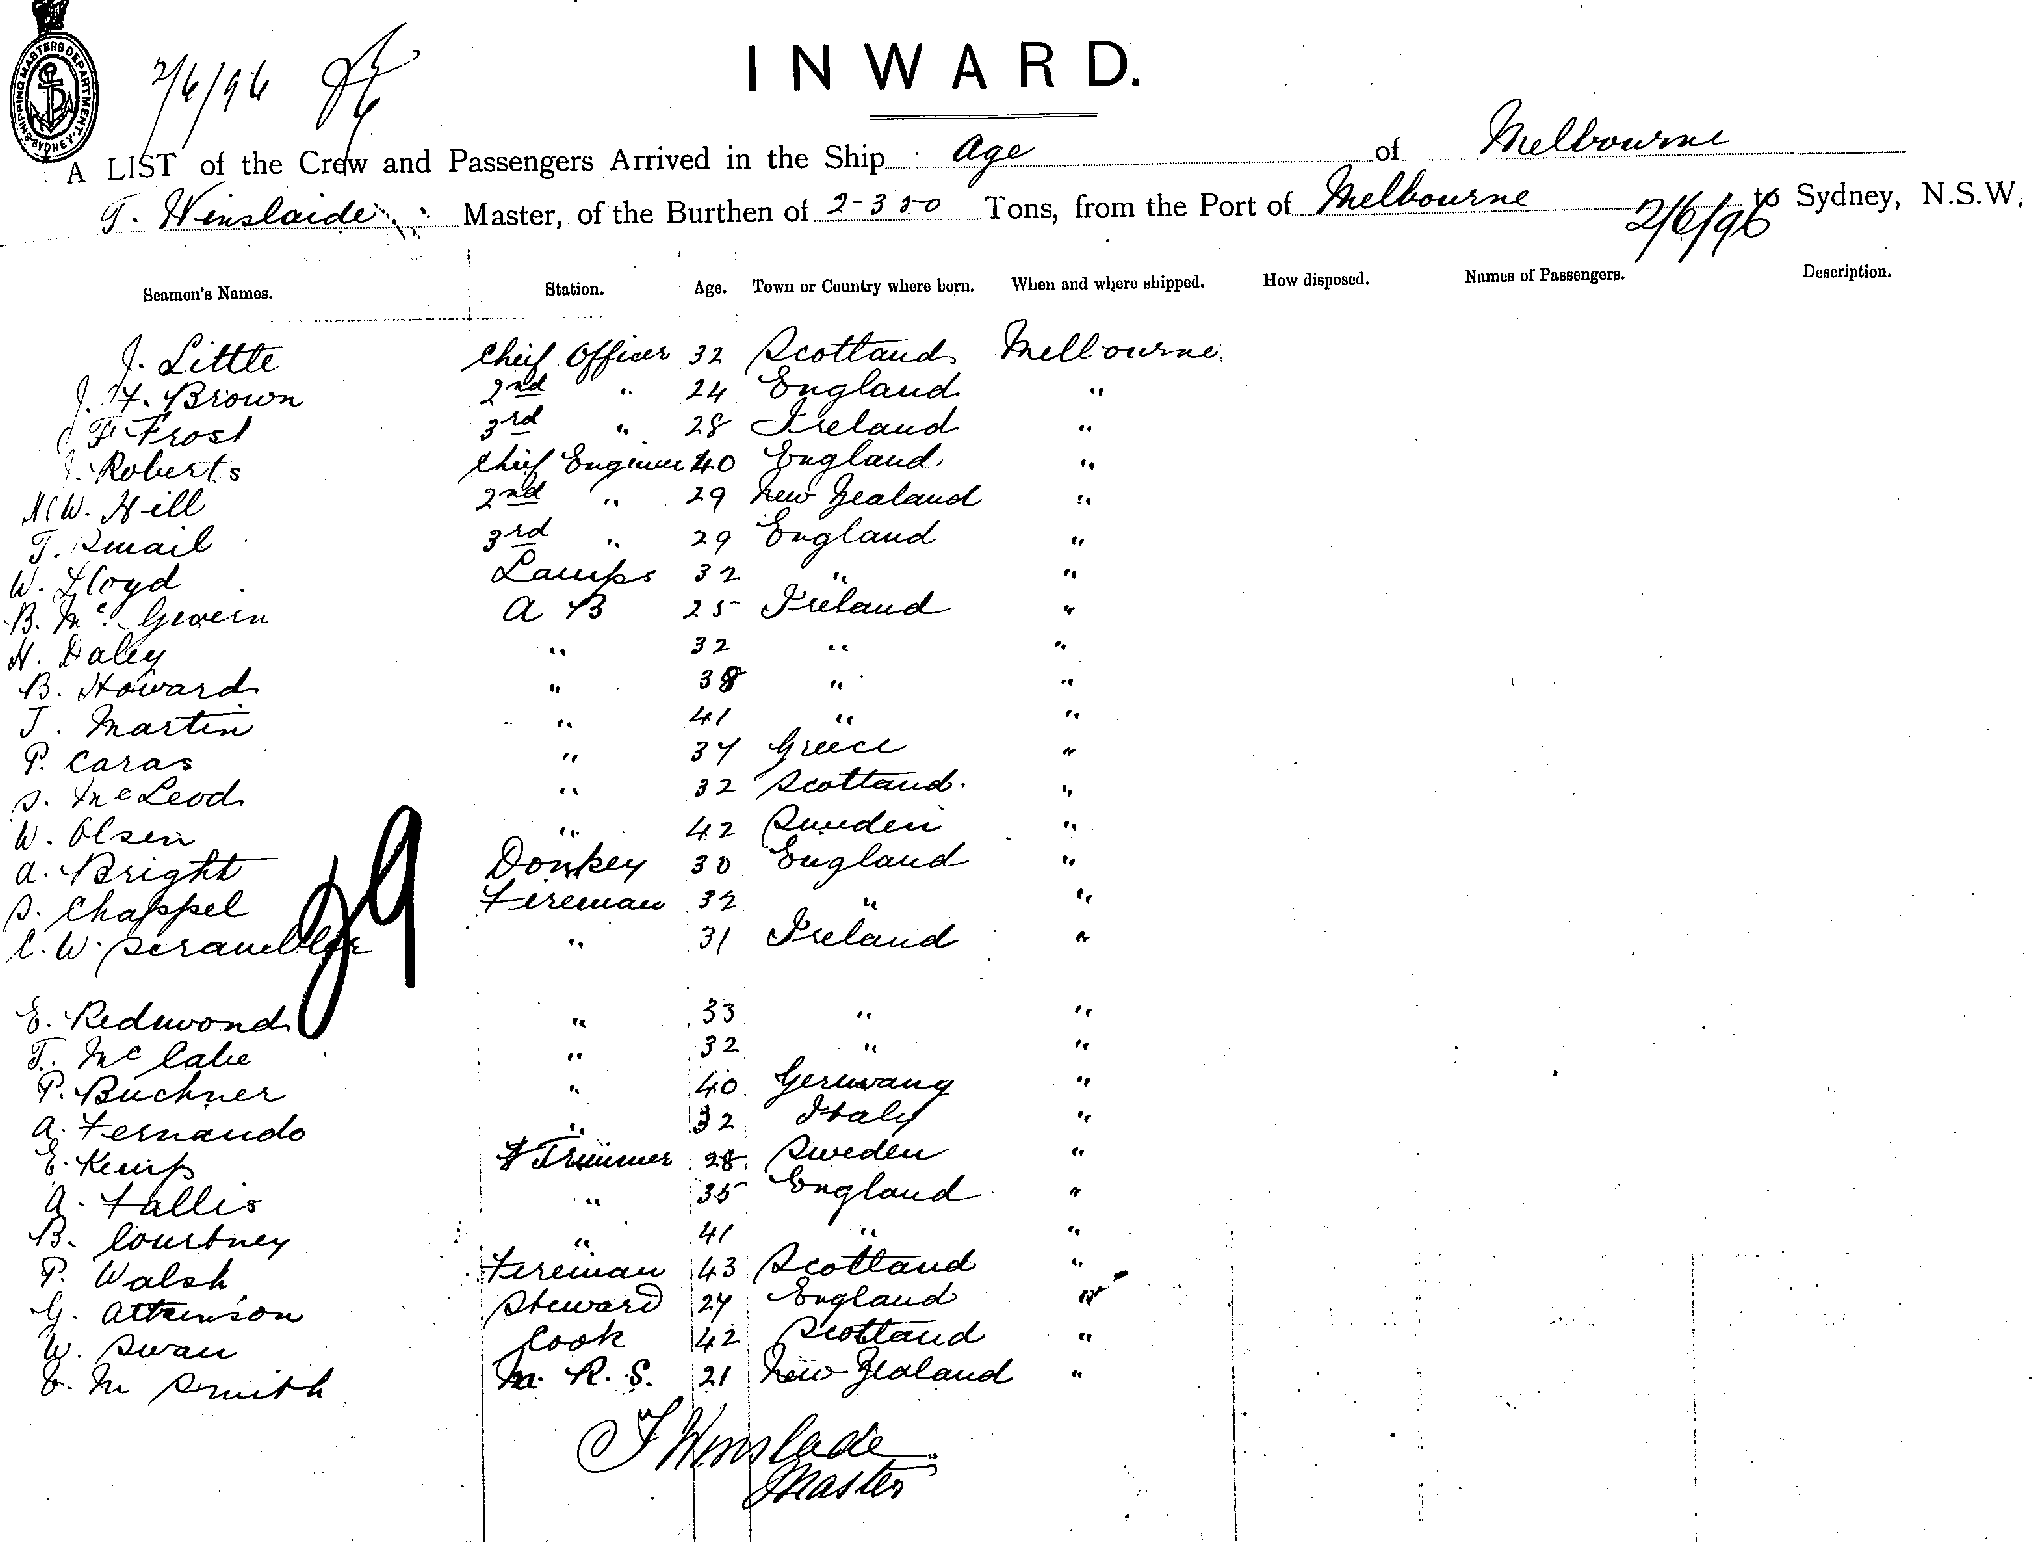 SHIPPING MASTERS DEPARTMENT SYDNEY
2/6/96
INWARD.
A LIST of the Crew and Passengers Arrived in the Ship Age of Melbourne
T. Winslaide Master, of the Burthen of 2-350 Tons, from the Port of Melbourne to Sydney, N.S.W.
2/6/96
Seamen's Names. Station. Age. Town or Country where born. When and where shipped. How disposed. Names of Passengers. Description.
J. Little Chief Officer 32 Scotland Melbourne
J. H. Brown 2nd " 24 England "
F Frost 3rd " 28 Ireland "
J. Roberts Chief Engineer 40 England "
W. Hill 2nd " 29 New Zealand "
T. Smail 3rd " 29 England "
W. Lloyd Lamps 32 " "
B. Mc Givern A B 25 Ireland "
H. Daley " 32 " "
B. Howard " 38 " "
J. Martin " 41 " "
P. Caras " 37 Greece "
S. McLeod " 32 Scotland. "
W. Olsen " 42 Sweden "
A. Bright Donkey 30 England "
S. Chappel Fireman 32 " "
C. W. " 31 Ireland "
29
E. Redmond " 33 " "
T. Mc Cabe " 32 " "
P. Buchner " 40 Germany "
A. Fernando " 32 Italy "
E. Kemp Trimmer 28 Sweden "
A. Fallis " 35 England "
B. Courtney " 41 " "
P. Walsh Fireman 43 Scotland "
G. Atkinson Steward 27 England "
W. Swan Cook 42 Scotland "
M Smith M. R. S. 21 New Zealand "
T Winslade
Master